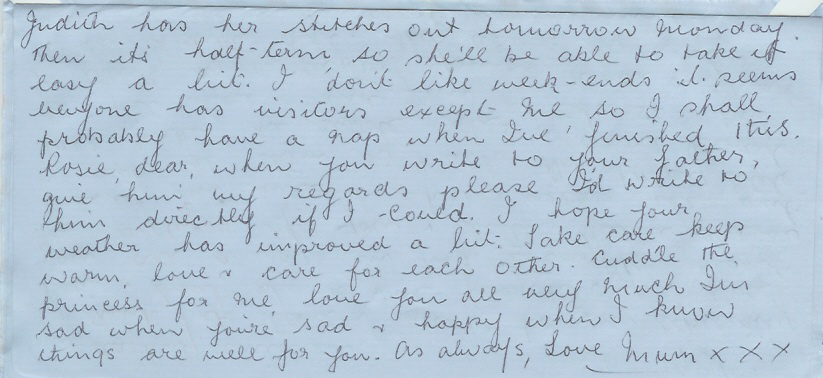 Judith has her stitches out tomorrow Monday.
Then its half-term so she'll be able to take it
easy a bit. I don't like week-ends it seems
everyone has visitors except me so I shall
probably have a nap when I've finished this.
Rosie, dear, when you write to your father,
give him my regards please I'd write to
him directly if I could. I hope your
weather has improved a bit. Take care keep
warm, love & care for each other. Cuddle the
princess for me, love you all very much I'm
sad when you're sad & happy when I know
things are well for you. As always, Love Mum x x x